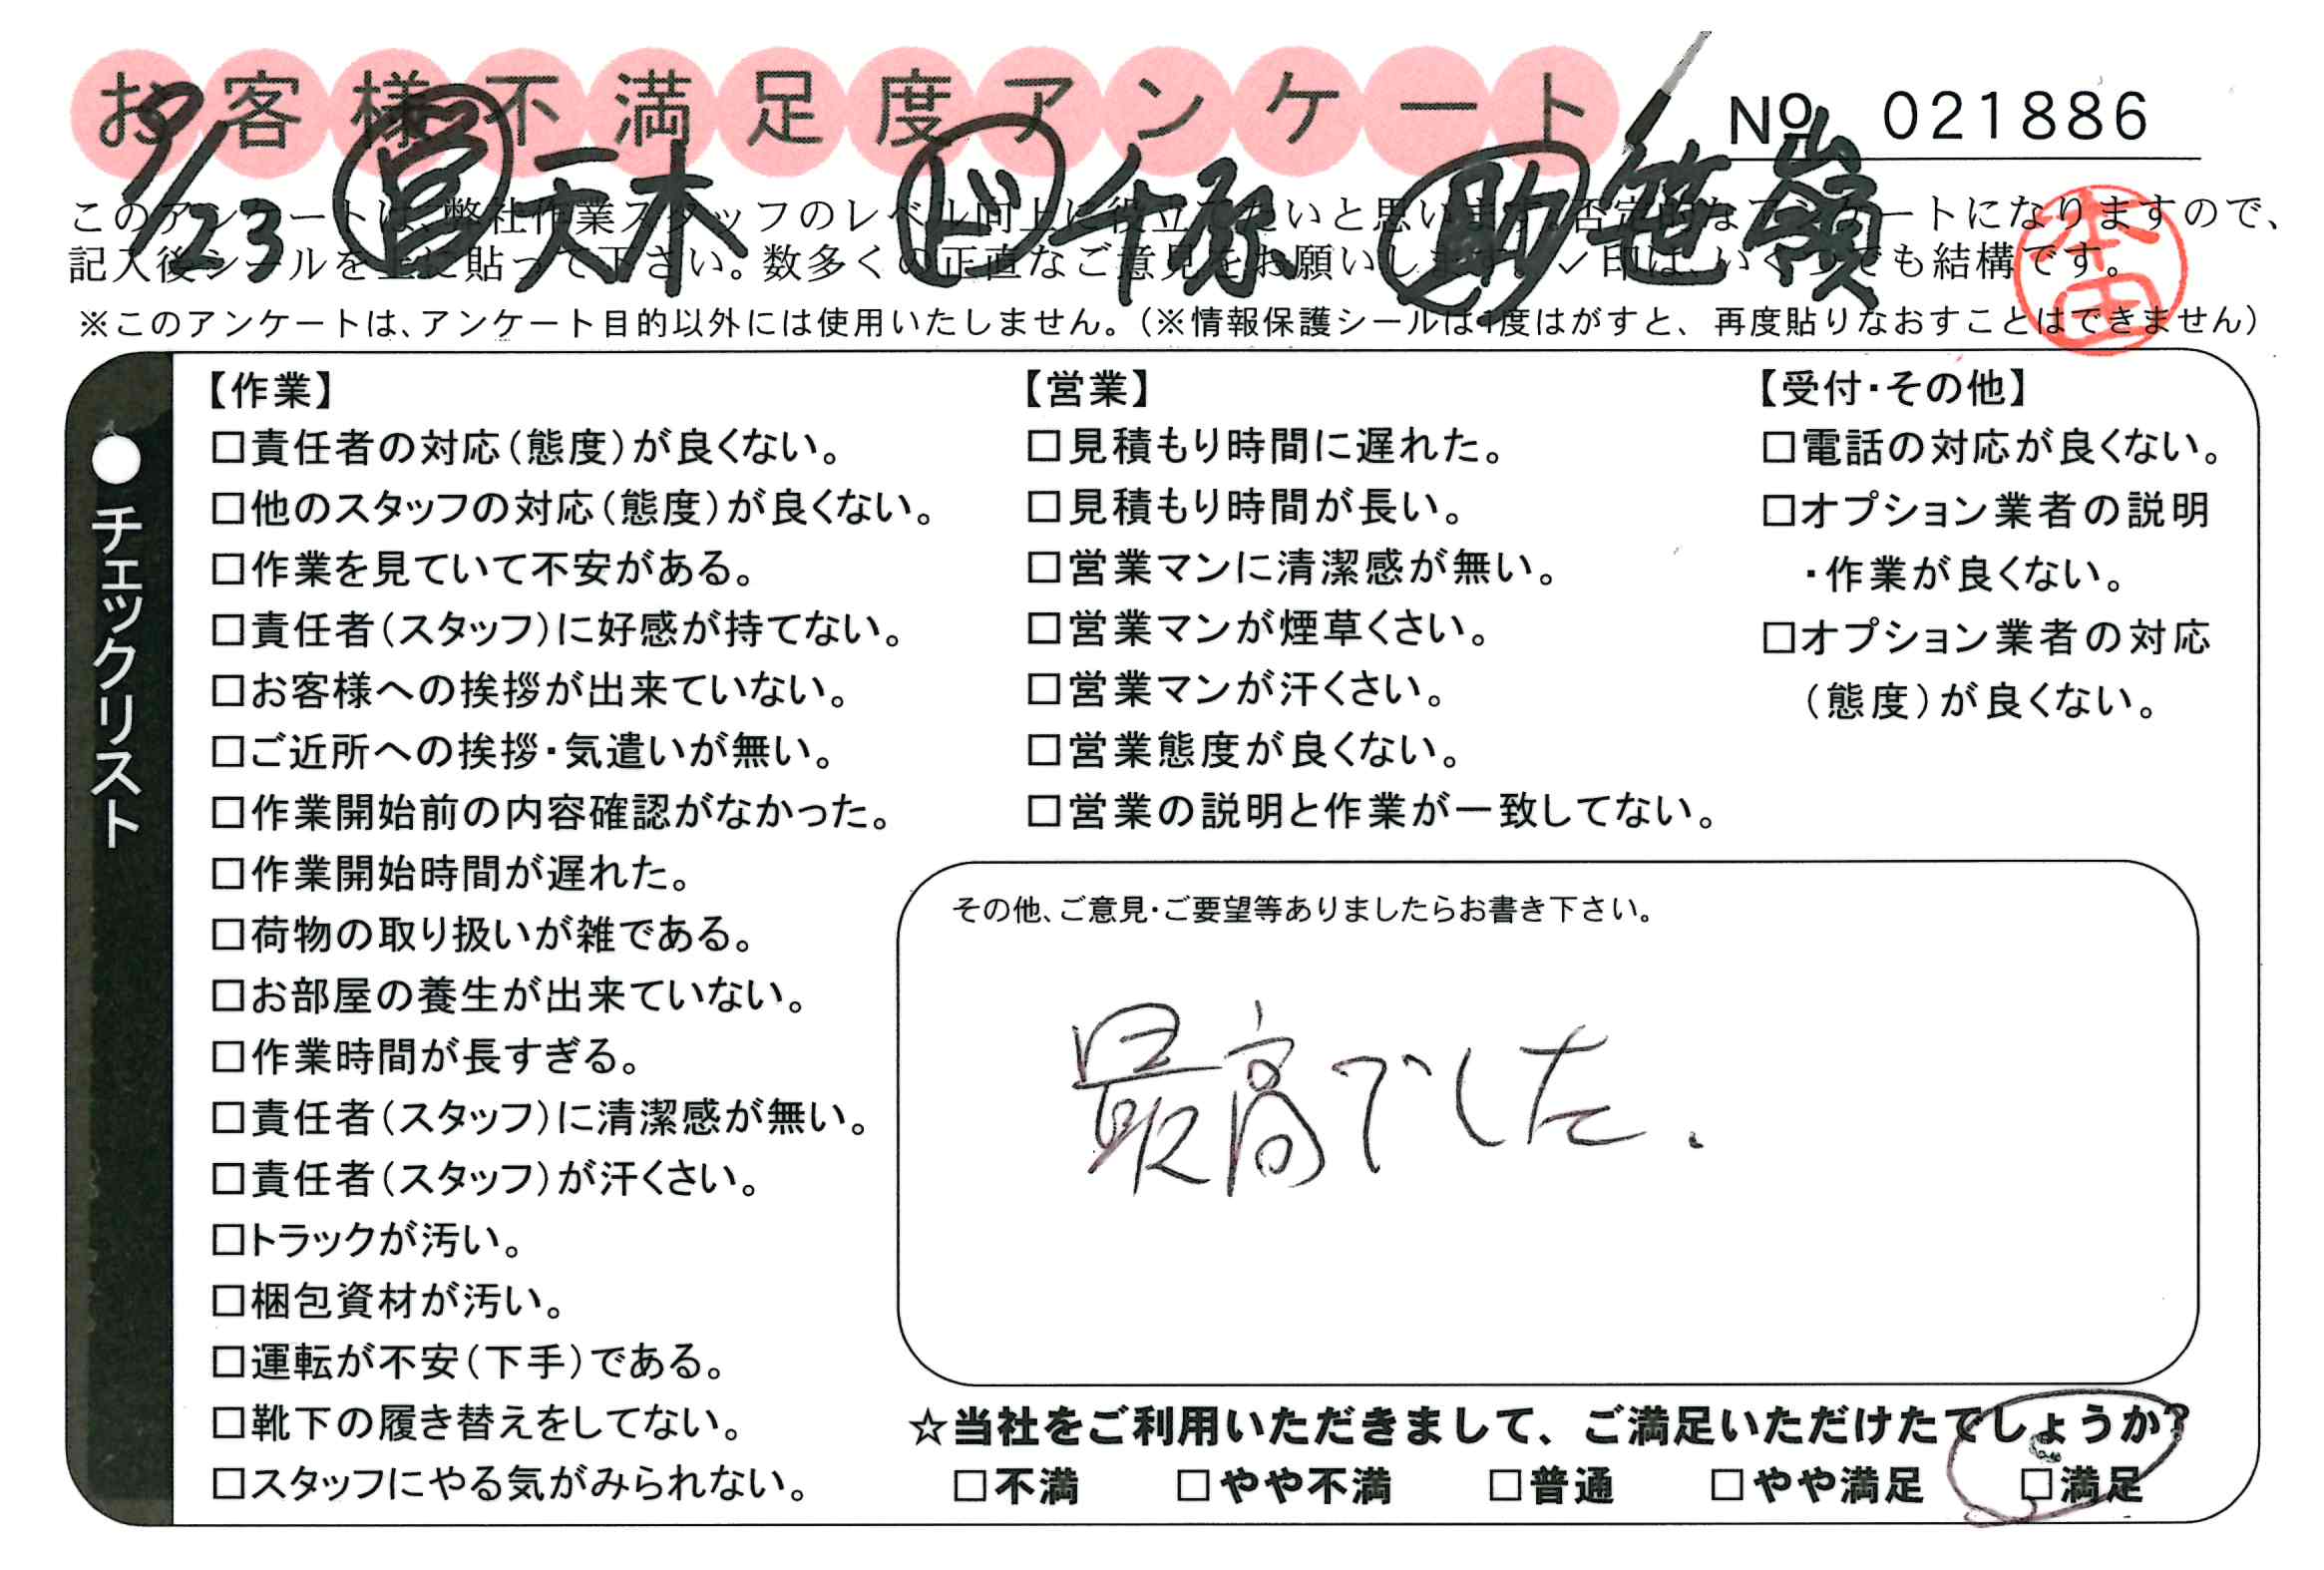 お客様不満足度アンケート
No 021886
9/23 天木 ド 千原 助 笹嶺
このアンケートは、弊社作業スタッフのレベル向上に役立てたいと思います。否定的なアンケートになりますので、
記入後シールを上に貼って下さい。数多くの正直なご意見をお願いします。✓印は、いくつでも結構です。
本田
※このアンケートは、アンケート目的以外には使用いたしません。（※情報保護シールは1度はがすと、再度貼りなおすことはできません）
●チェックリスト
【作業】
□責任者の対応（態度）が良くない。
□他のスタッフの対応（態度）が良くない。
□作業を見ていて不安がある。
□責任者（スタッフ）に好感が持てない。
□お客様への挨拶が出来ていない。
□ご近所への挨拶・気遣いが無い。
□作業開始前の内容確認がなかった。
□作業開始時間が遅れた。
□荷物の取り扱いが雑である。
□お部屋の養生が出来ていない。
□作業時間が長すぎる。
□責任者（スタッフ）に清潔感が無い。
□責任者（スタッフ）が汗くさい。
□トラックが汚い。
□梱包資材が汚い。
□運転が不安（下手）である。
□靴下の履き替えをしてない。
□スタッフにやる気がみられない。
【営業】
□見積もり時間に遅れた。
□見積もり時間が長い。
□営業マンに清潔感が無い。
□営業マンが煙草くさい。
□営業マンが汗くさい。
□営業態度が良くない。
□営業の説明と作業が一致してない。
【受付・その他】
□電話の対応が良くない。
□オプション業者の説明
・作業が良くない。
□オプション業者の対応
（態度）が良くない。
その他、ご意見・ご要望等ありましたらお書き下さい。
最高でした.
☆当社をご利用いただきまして、ご満足いただけたでしょうか?
□不満 □やや不満 □普通 □やや満足 □満足